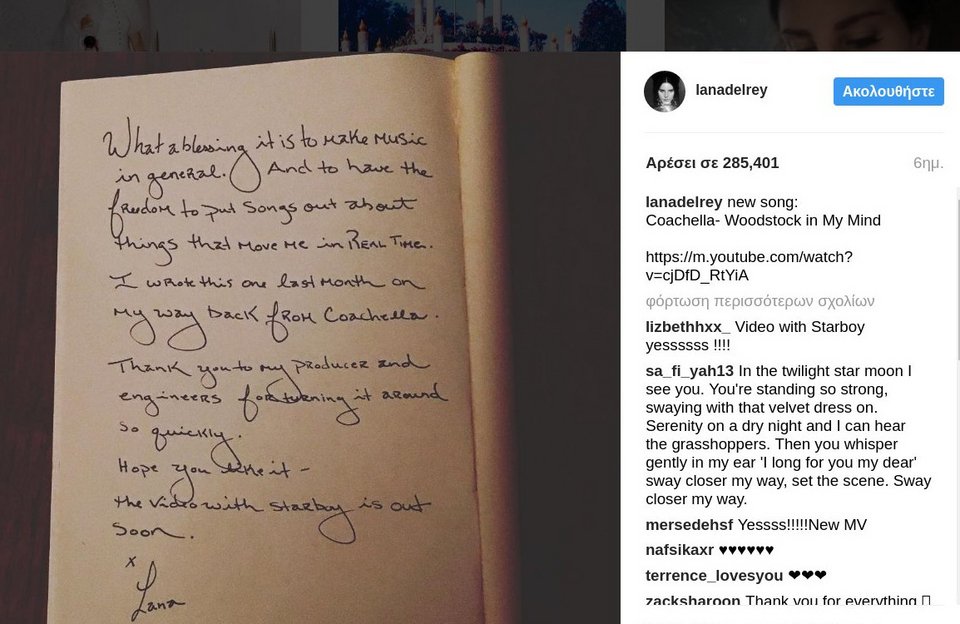 What a blessing it is to make music
in general. And to have the
freedom to put songs out about
things that move me in Real Time.
I wrote this one last month on
my way back from Coachella.
Thank you to my producer and
engineers for turning it around
so quickly.
Hope you like it -
the video with starboy is out
soon.
x
Lana
lanadelrey
Ακολουθήστε
Αρέσει σε 285,401
6ημ.
lanadelrey new song:
Coachella- Woodstock in My Mind
https://m.youtube.com/watch?
v=cjDfD_RtYiA
φόρτωση περισσότερων σχολίων
lizbethhxx_ Video with Starboy
yessssss !!!!
sa_fi_yah13 In the twilight star moon I
see you. You're standing so strong,
swaying with that velvet dress on.
Serenity on a dry night and I can hear
the grasshoppers. Then you whisper
gently in my ear 'I long for you my dear'
sway closer my way, set the scene. Sway
closer my way.
mersedehsf Yessss!!!!!New MV
nafsikaxr ♥♥♥♥♥♥
terrence_lovesyou ❤❤❤
zacksharoon Thank you for everything